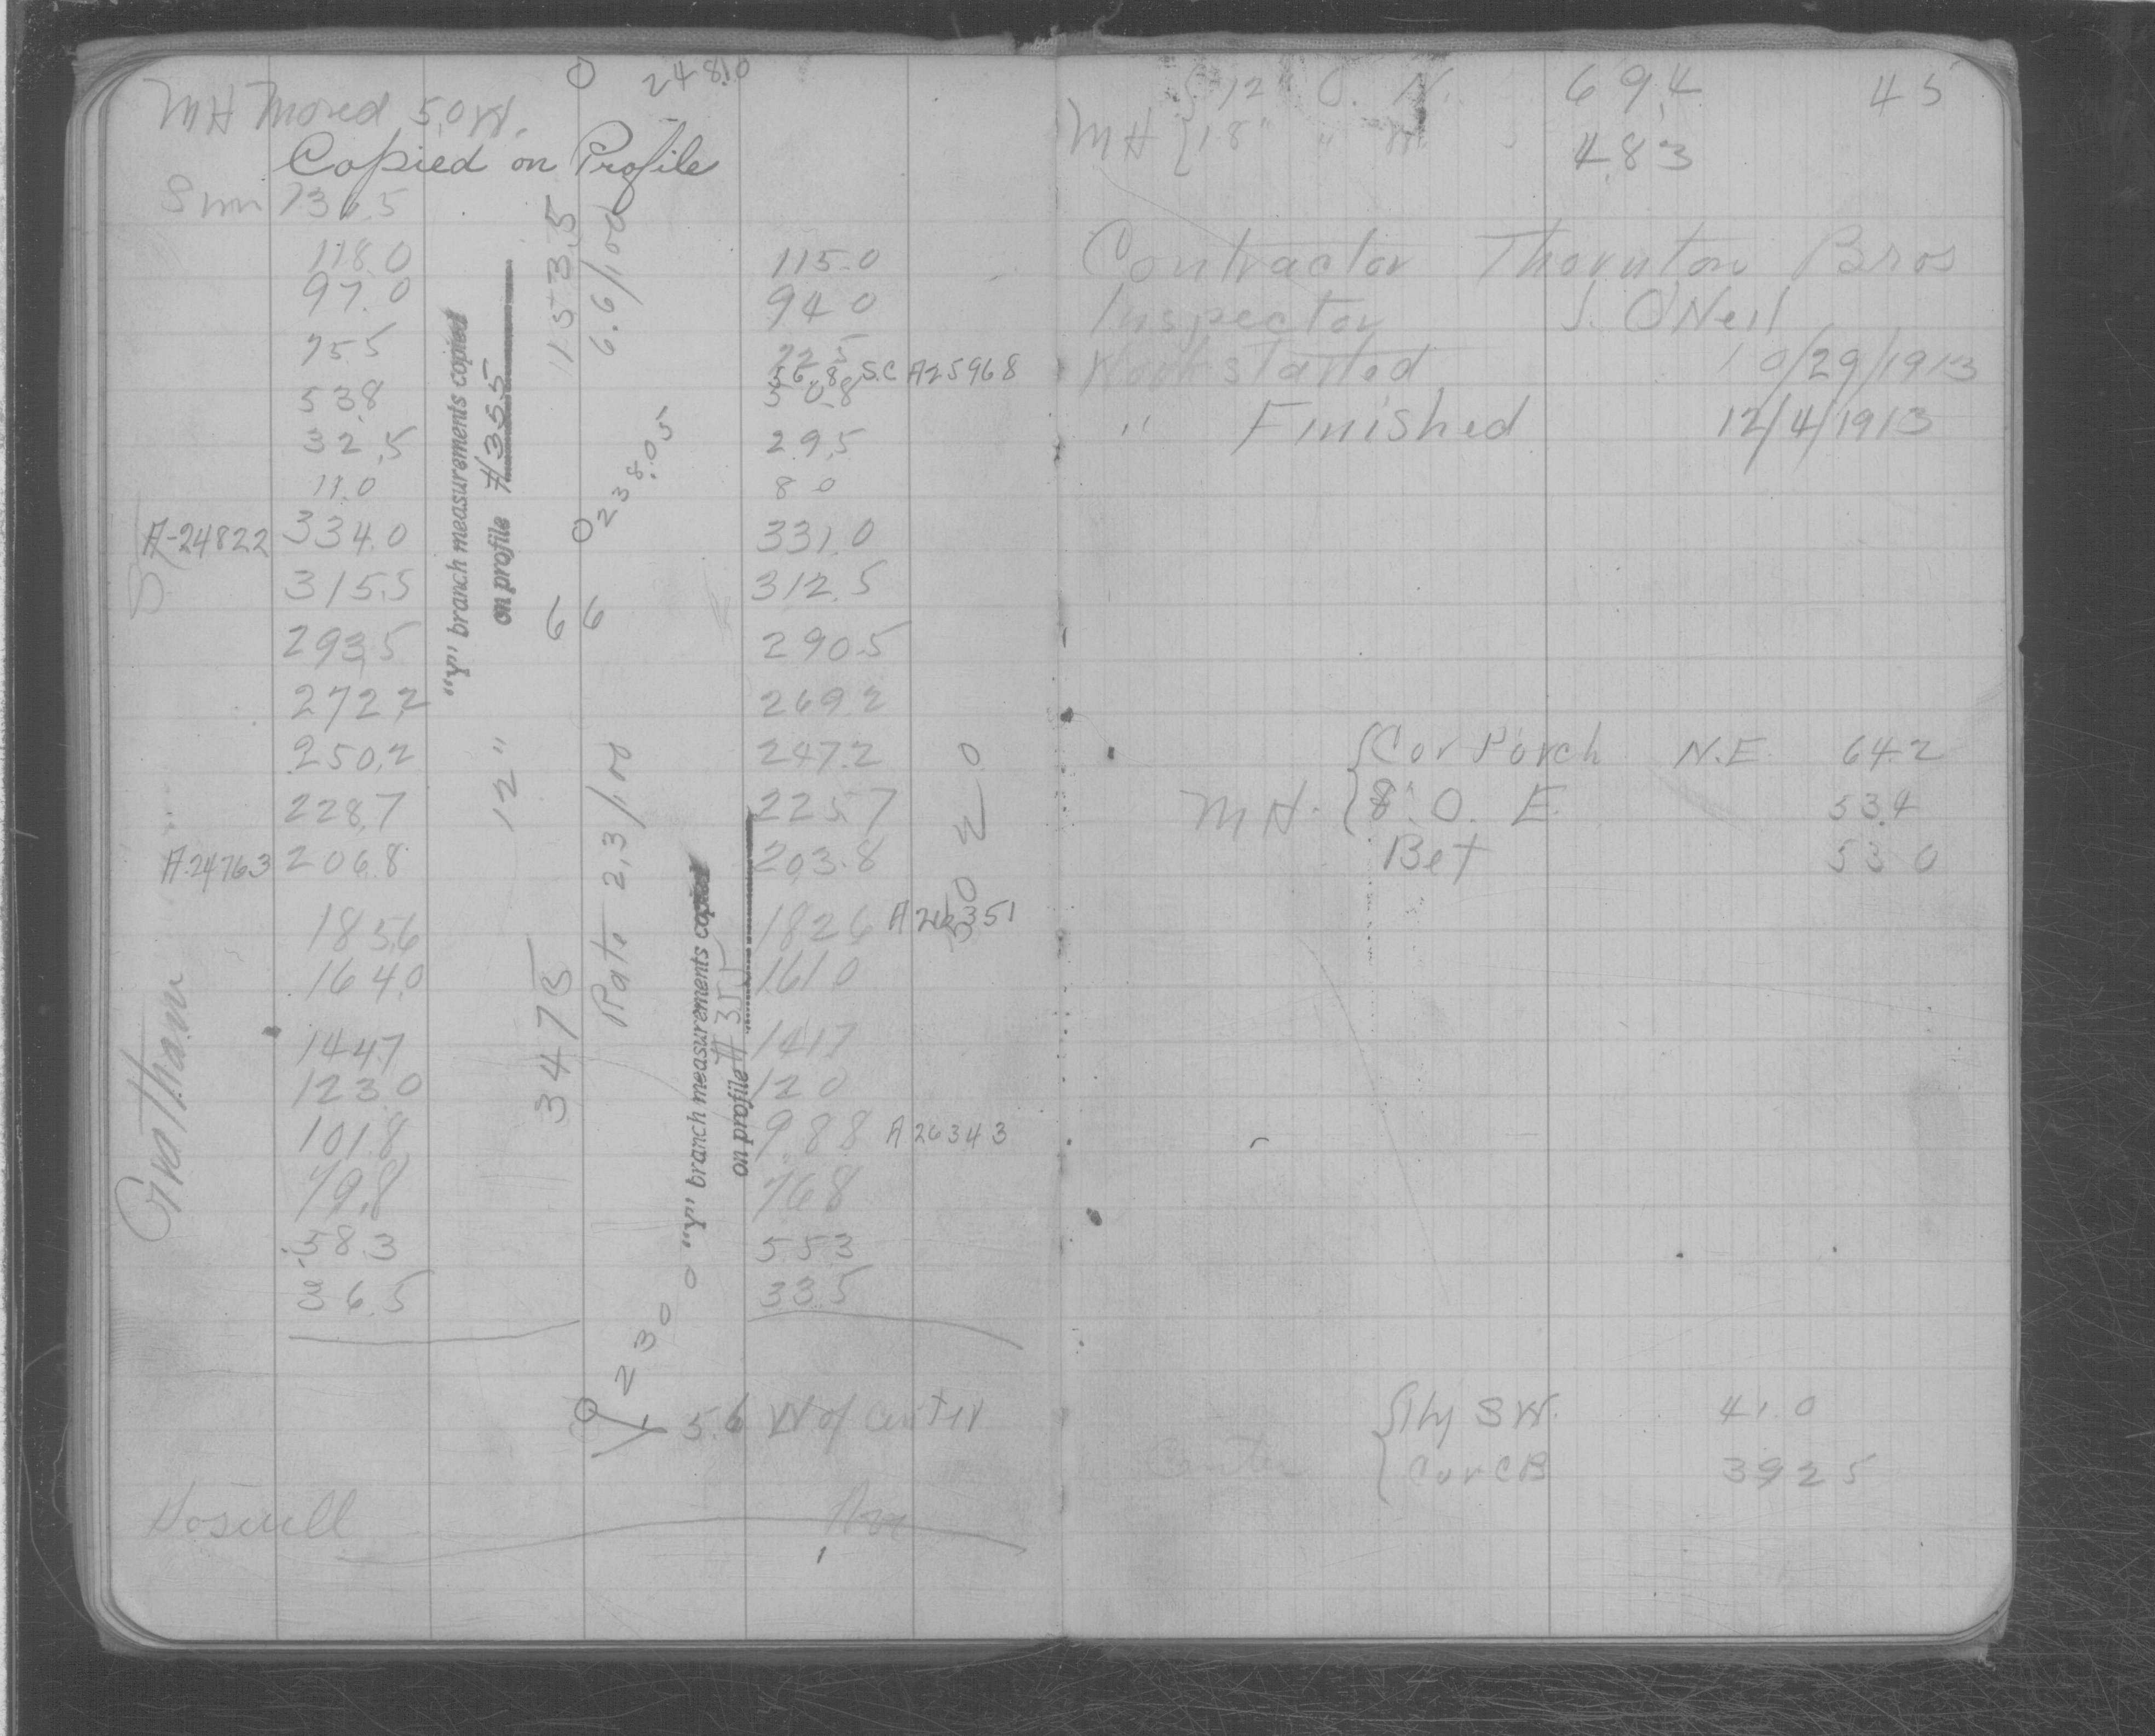 MH Moved 5.0 W.
Copied on Profile
136.5
118.0
97.0
75.5
53.8
32.5
11.0
A-24822 334.0
315.5
293.5
272.2
250.2
228.7
A-24763 206.8
185.6
164.0
144.7
123.0
101.8
79.8
58.3
36.5
"Y" branch measurements copied
on profile #355
12"
248.0
115 3.5
6.6/100
238.05
66
Rate 2.3/100
347.5
230
5.6 W of Center
115.0
94.0
72.5
56.8 S.C A25968
50.8
29.5
8.0
331.0
312.5
290.5
269.2
247.2
225.7
203.8
182.6
161.0
141.7
120
98.8 A26343
76.8
55.3
33.5
"Y" branch measurements copied
on profile #355
Grotham
45
12" O. N. 69.4
MH 18" " W. 48.3
Contractor Thornton Bros
Inspector J. O'Neil
Work started 10/29/1913
" Finished 12/4/1913
Cor Porch N.E. 64.2
MH. 8" O. E. 53.4
Bet 53.0
S W. 41.0
Center Cor CB 39.25